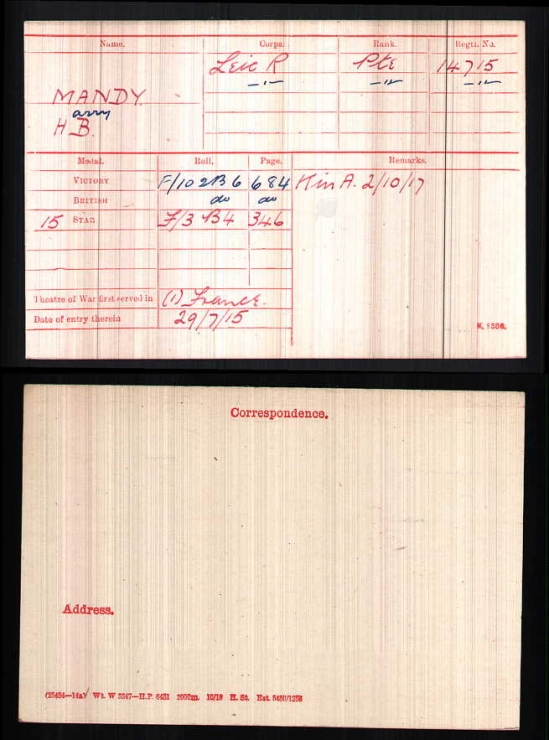 Name. Corps. Rank. Regtl. No.
Leic R Pte 14715
—"— —"— —"—
MANDY
arry
H.B.
Medal. Roll. Page. Remarks.
VICTORY F/102B6 684 K in A. 2/10/17
BRITISH do do
15 STAR F/3 B4 346
Theatre of War first served in (1) France.
Date of entry therein 29/7/15
K. 1380.
Correspondence.
Address.
(25454—14a) Wt. W 5347—H.P. 6421 2000m. 10/18 H. St. Est. 5480/1258